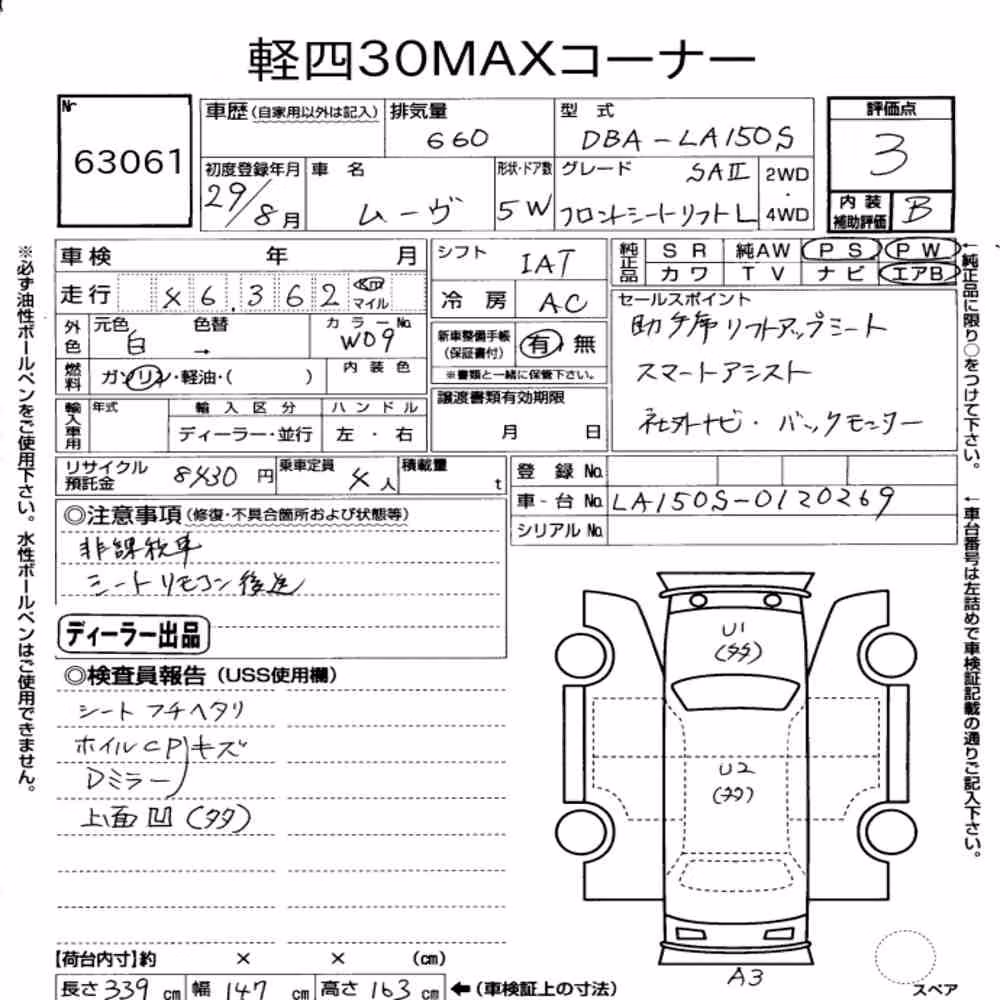 軽四30MAXコーナー
Nr
63061
車歴(自家用以外は記入)
排気量
660
型式
DBA-LA150S
評価点
3
初度登録年月
29/8月
車名
ムーヴ
形状・ドア数
5W
グレード
SAⅡ
フロントシートリフトL
2WD
・
4WD
内装
補助評価
B
車検 年 月
走行 46,362 Km
マイル
シフト
IAT
冷房
AC
純正品
SR 純AW PS PW
カワ TV ナビ エアB
外色
元色
白
色替
→
カラーNo.
W09
燃料
ガソリン・軽油・( )
内装色
新車整備手帳
(保証書付)
有・無
※書類と一緒に保管下さい。
セールスポイント
助手席リフトアップシート
スマートアシスト
社外ナビ・バックモニター
輸入車用
年式
輸入区分
ディーラー・並行
ハンドル
左・右
譲渡書類有効期限
月 日
リサイクル
預託金
8430円
乗車定員
4人
積載量
t
登録No.
車台No.
LA150S-0120269
シリアルNo.
◎注意事項(修復・不具合箇所および状態等)
非課税車
シートリモコン後送
ディーラー出品
◎検査員報告(USS使用欄)
シートフチヘタリ
ホイルCP キズ
Dミラー
上面凹(タタ)
U1
(タタ)
U2
(タタ)
A3
スペア
【荷台内寸】約 × × (cm)
長さ339cm 幅147cm 高さ163cm ←(車検証上の寸法)
※必ず油性ボールペンをご使用下さい。水性ボールペンはご使用できません。
←純正品に限り○をつけて下さい。
←車台番号は左詰めで車検証記載の通りご記入下さい。